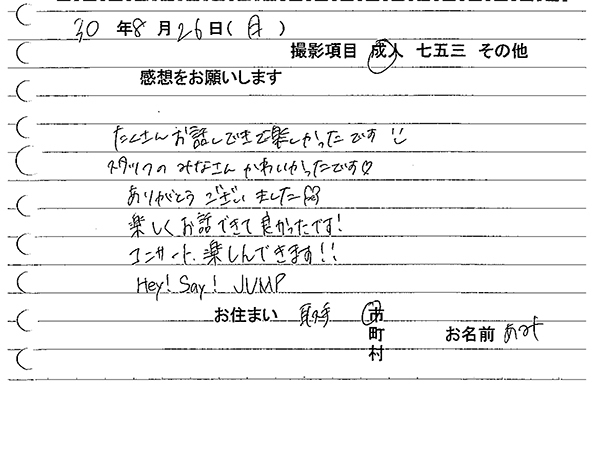 30 年 8 月 26 日 ( 月 )
撮影項目 成人 七五三 その他
感想をお願いします
たくさんお話しできて楽しかったです
スタッフのみなさんかわいかったです♡
ありがとうございました
楽しくお話できて良かったです!
コンサート楽しんできます!!
Hey! Say! JUMP
お住まい 取手 市
町
村
お名前 あみ